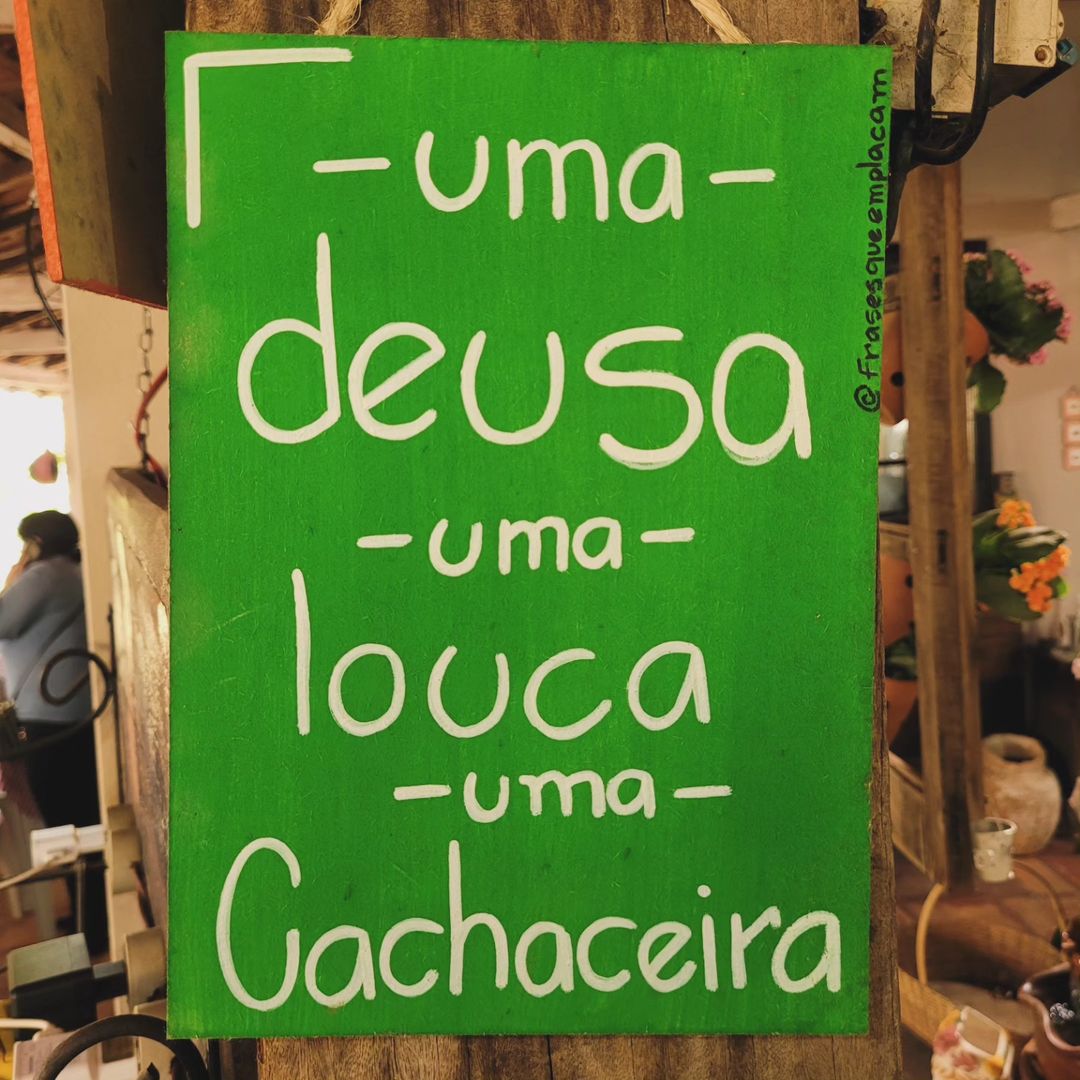 -uma-
deusa
-uma-
louca
-uma-
Cachaceira
@frasesqueemplacam